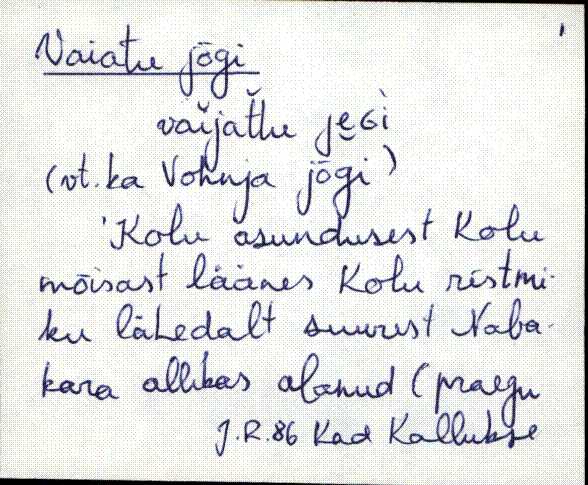 Vaiatu jõgi
vaijattu je̮Gì
(vt. ka Vohnja jõgi)
'Kolu asundusest Kolu
mõisast läänes Kolu ristmi-
ku läHedalt suurest Naba-
kara allikas alanud (praegu
J.R.86 Kad Kallukse